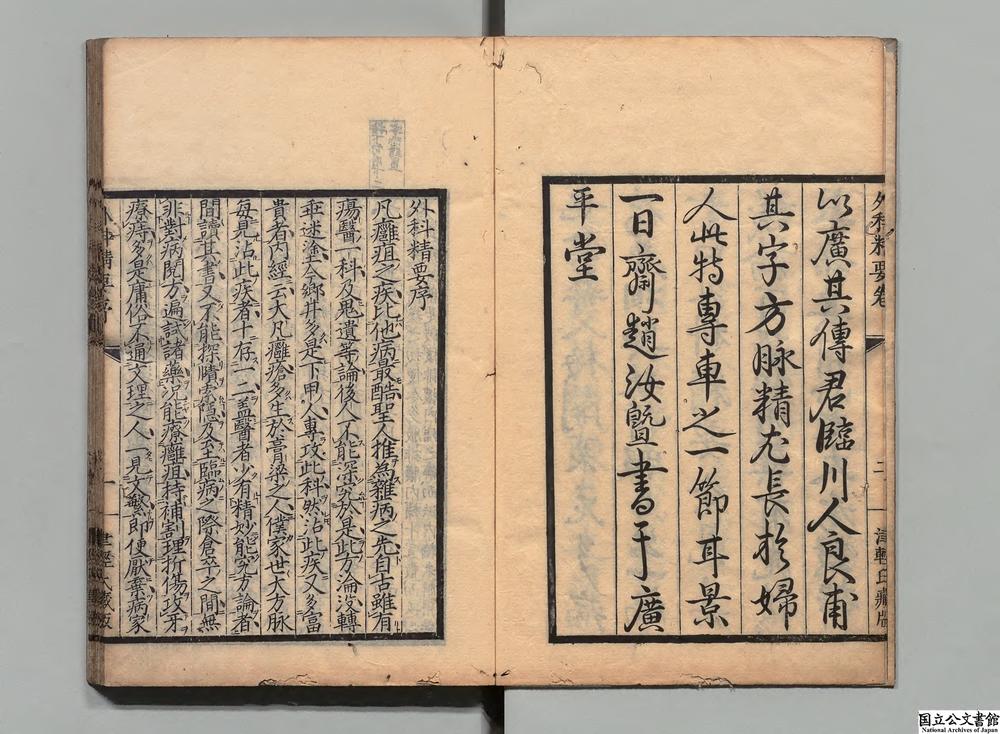 外科精要卷
二
津輕氏藏版
以廣其傳君臨川人良甫
其字方脉精尤長於婦
人此特專車之一節耳景
一日齋趙汝暨書于廣
平堂
外科精要序
凡癰疽之疾比他病最酷聖人推為雜病之先自古雖有
瘍醫一科及鬼遺等論後人不能深究於是此方淪沒轉
乖迷塗今鄉井多是下甲人專攻此科然沾此疾又多富
貴者內經云大凡癰瘡多生於膏粱之人僕家世大方脉
每見沾此疾者十存一二蓋醫者少有精妙能究方論者
間讀其書又不能探賾索隱及至臨病之際倉卒之間無
非對病閱方遍試諸藥況能療癰疽持補割理折傷攻牙
療痔多是庸俗不通文理之人一見文繁即便厭棄病家
一
津輕氏藏版
国立公文書館
National Archives of Japan